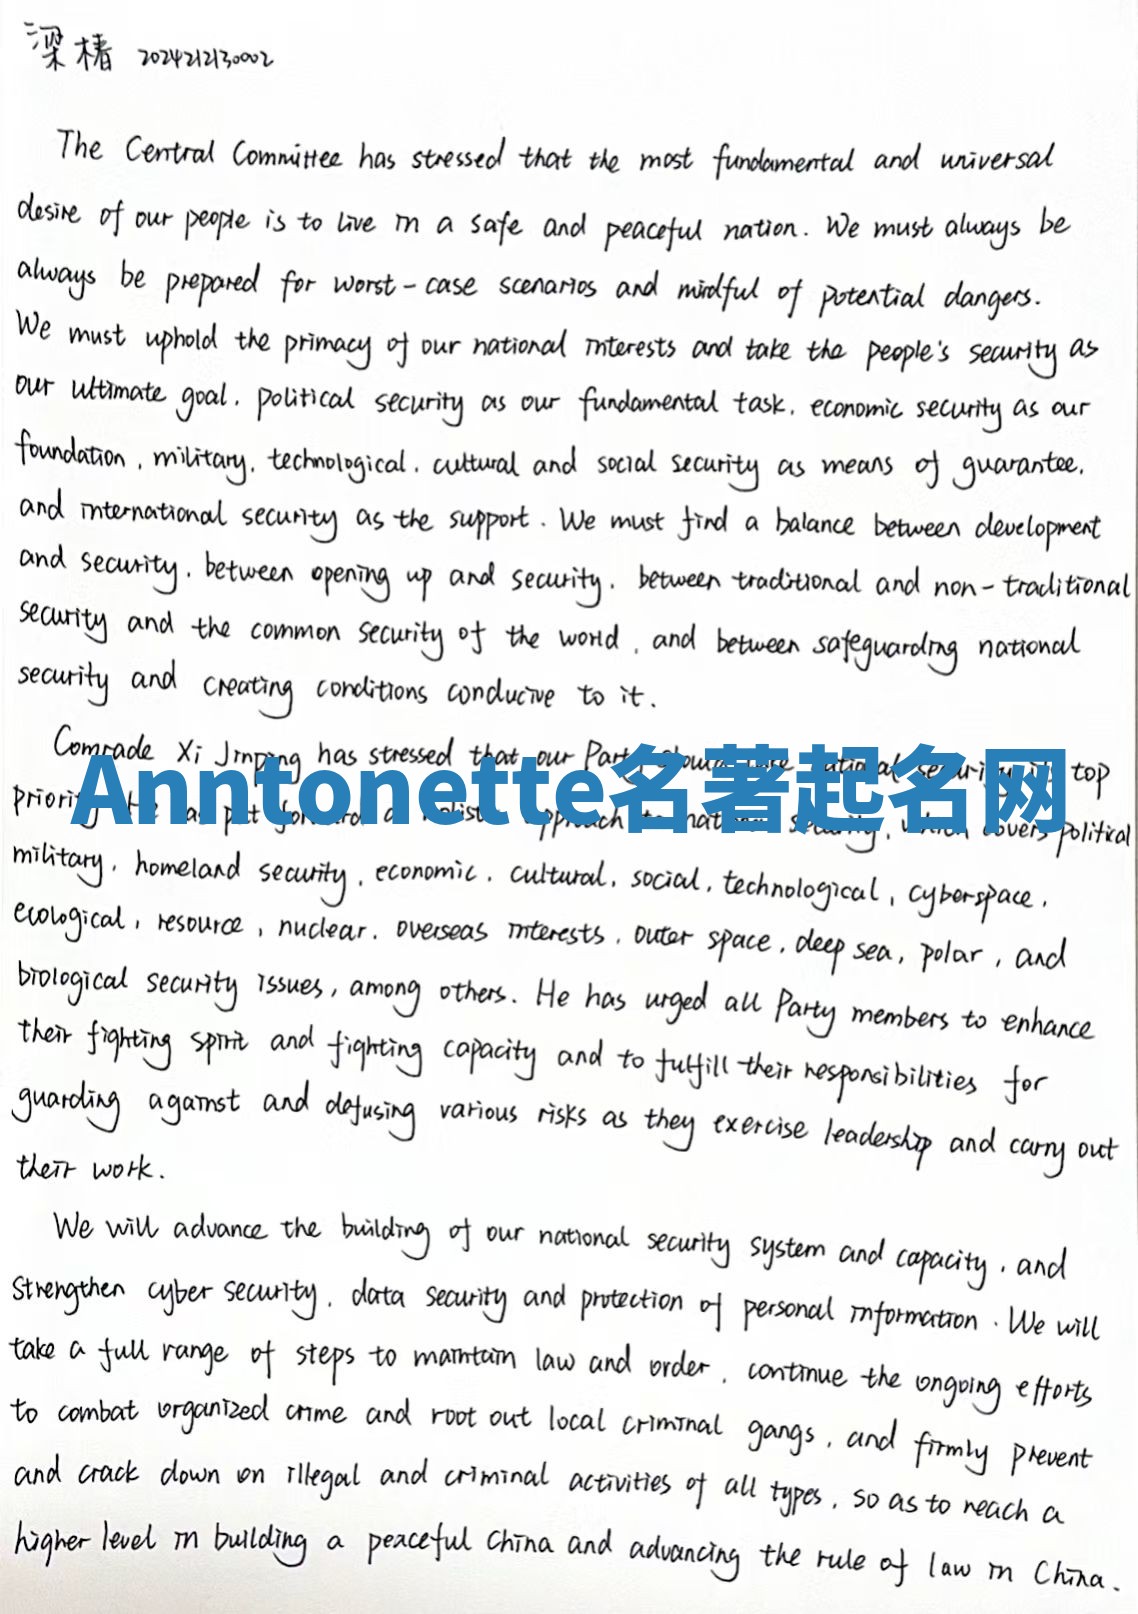 梁椿 2024212130002
The Central Committee has stressed that the most fundamental and universal
desire of our people is to live in a safe and peaceful nation. We must always be
always be prepared for worst-case scenarios and mindful of potential dangers.
We must uphold the primacy of our national interests and take the people's security as
our ultimate goal, political security as our fundamental task, economic security as our
foundation, military, technological, cultural and social security as means of guarantee,
and international security as the support. We must find a balance between development
and security, between opening up and security, between traditional and non-traditional
security and the common security of the world, and between safeguarding national
security and creating conditions conducive to it.
Comrade Xi Jinping has stressed that our Party national security its top
Anntonette名著起名网
priority put forward a approach to national security, which covers political
military, homeland security, economic, cultural, social, technological, cyberspace,
ecological, resource, nuclear, overseas interests, outer space, deep sea, polar, and
biological security issues, among others. He has urged all Party members to enhance
their fighting spirit and fighting capacity and to fulfill their responsibilities for
guarding against and defusing various risks as they exercise leadership and carry out
their work.
We will advance the building of our national security system and capacity, and
strengthen cyber security, data security and protection of personal information. We will
take a full range of steps to maintain law and order, continue the ongoing efforts
to combat organized crime and root out local criminal gangs, and firmly prevent
and crack down on illegal and criminal activities of all types, so as to reach a
higher level in building a peaceful China and advancing the rule of law in China.